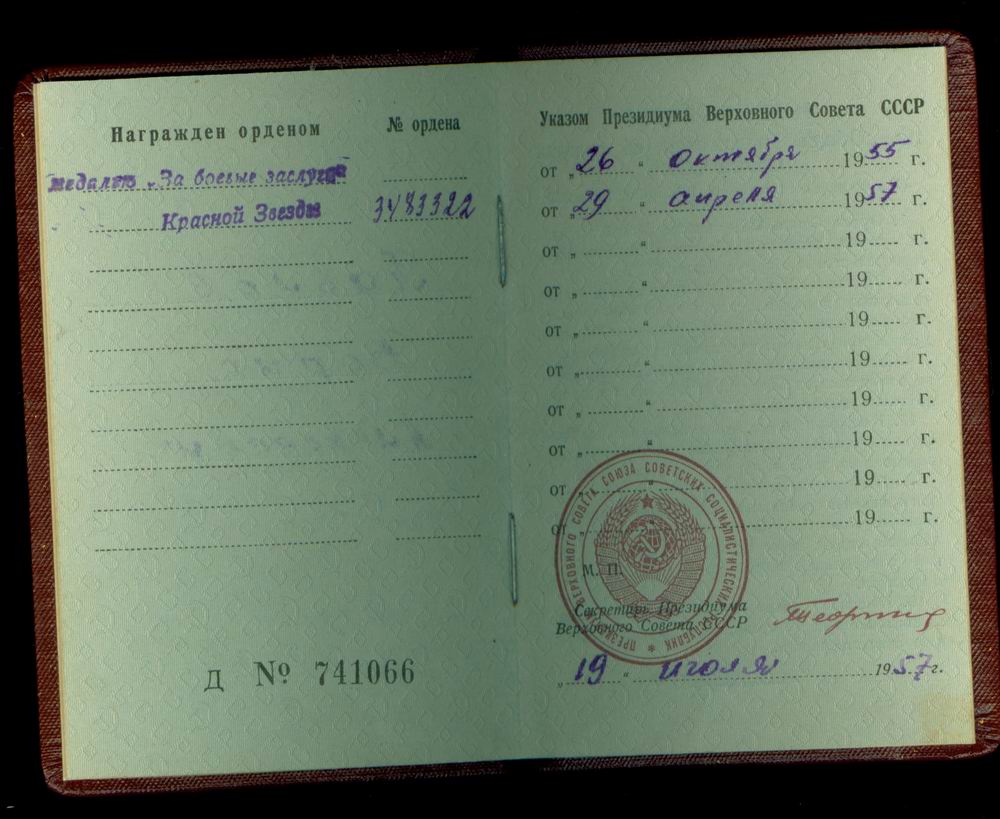 Награжден орденом
№ ордена
медалью „За боевые заслуги“
Красной Звезды 3483322
Д № 741066
Указом Президиума Верховного Совета СССР
от „26“ октября 1955 г.
от „29“ апреля 1957 г.
от „ “ 19 г.
от „ “ 19 г.
от „ “ 19 г.
от „ “ 19 г.
от „ “ 19 г.
от „ “ 19 г.
от „ “ 19 г.
от „ “ 19 г.
ПРЕЗИДИУМ ВЕРХОВНОГО СОВЕТА СОЮЗА СОВЕТСКИХ СОЦИАЛИСТИЧЕСКИХ РЕСПУБЛИК
М. П.
Секретарь Президиума
Верховного Совета СССР
„19“ июля 1957 г.